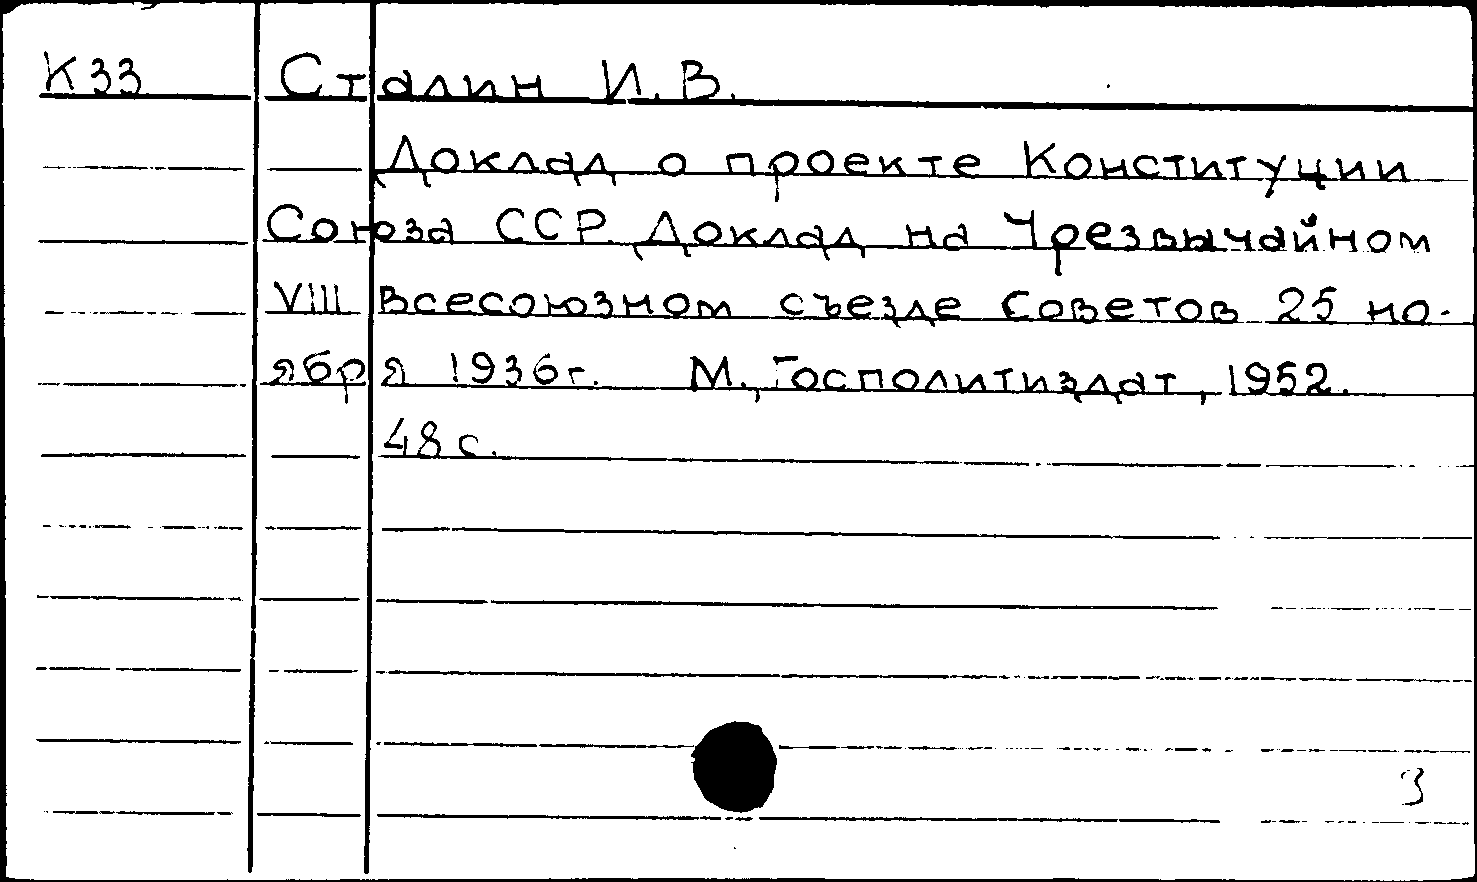 К33 Сталин И.В.
Доклад о проекте Конституции
Союза ССР. Доклад на Чрезвычайном
VIII Всесоюзном съезде Советов 25 но-
ября 1936г. М., Госполитиздат, 1952.
48 с.
3